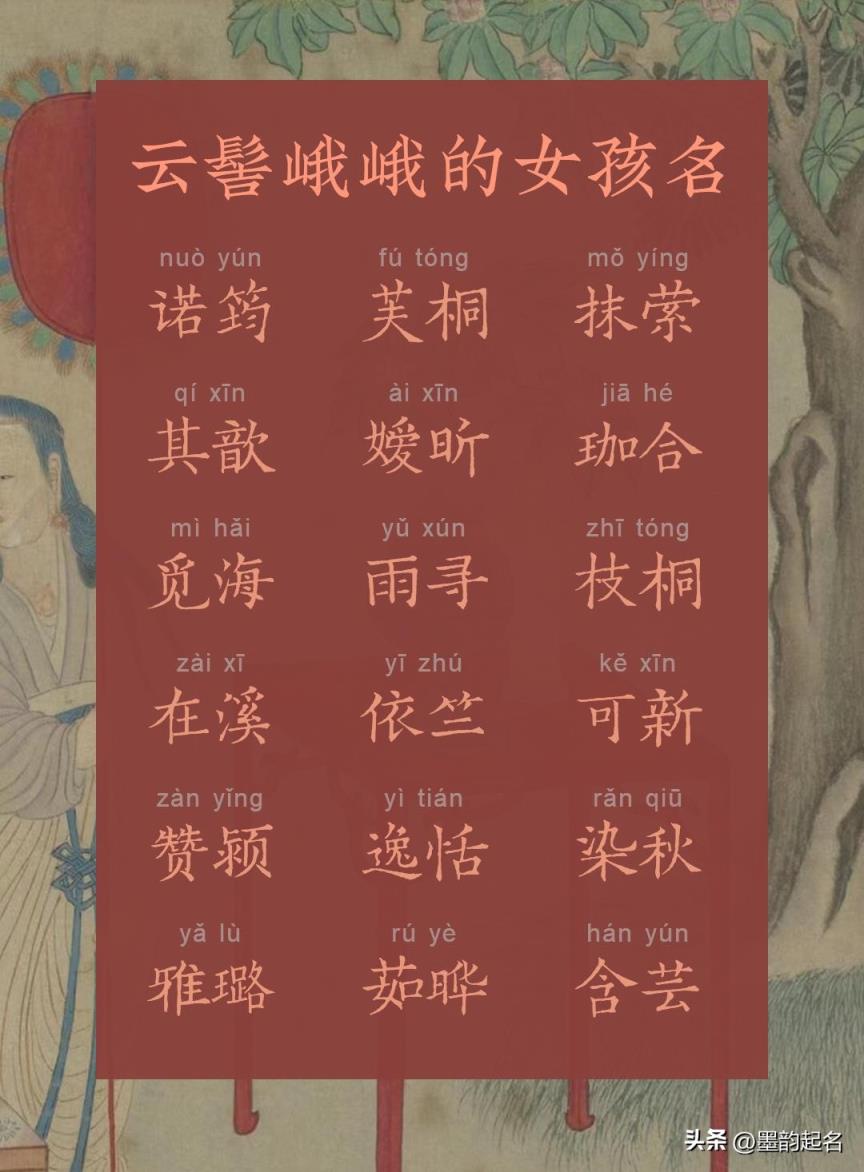 云髻峨峨的女孩名
nuò yún fú tóng mǒ yíng
诺筠 芙桐 抹萦
qí xīn ài xīn jiā hé
其歆 嫒昕 珈合
mì hǎi yǔ xún zhī tóng
觅海 雨寻 枝桐
zài xī yī zhú kě xīn
在溪 依竺 可新
zàn yǐng yì tián rǎn qiū
赞颍 逸恬 染秋
yǎ lù rú yè hán yún
雅璐 茹晔 含芸
头条 @墨韵起名